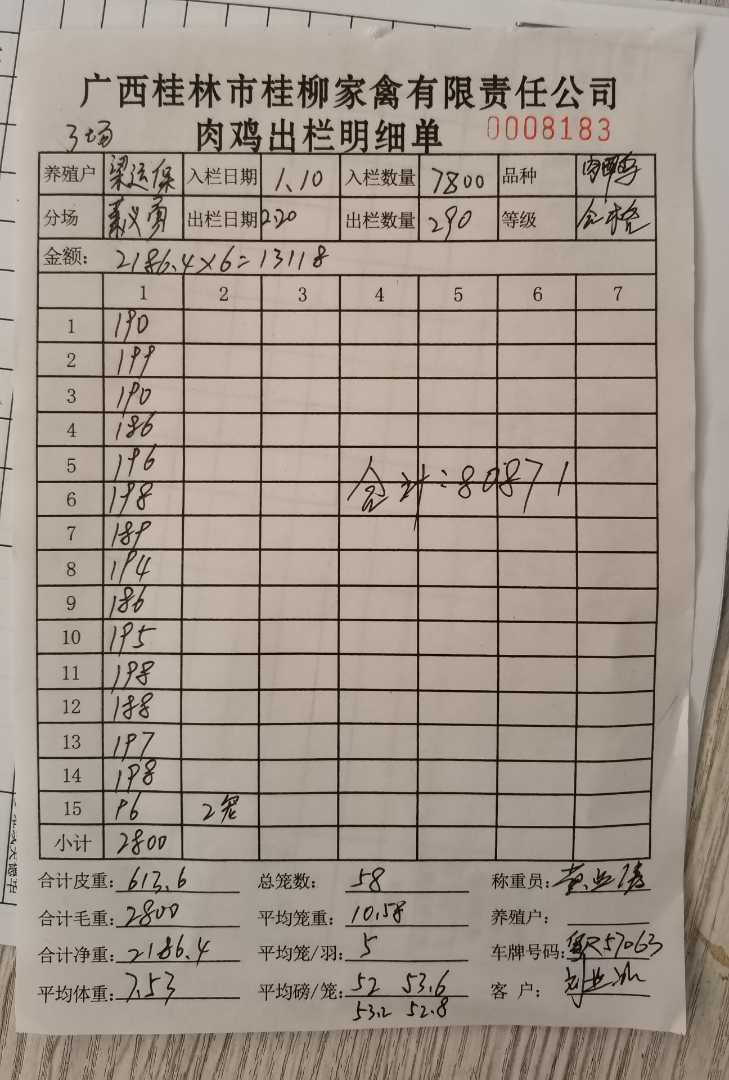 广西桂林市桂柳家禽有限责任公司
3场 肉鸡出栏明细单 0008183
养殖户 梁运保 入栏日期 1.10 入栏数量 7800 品种
分场 出栏日期 2.20 出栏数量 290 等级 合格
金额: 2186.4×6=13118
1 2 3 4 5 6 7
1 190
2 199
3 190
4 186
5 196
合计:80871
6 198
7 189
8 194
9 186
10 195
11 198
12 188
13 197
14 198
15 96 2笼
小计 2800
合计皮重: 613.6 总笼数: 58 称重员:
合计毛重: 2800 平均笼重: 10.58 养殖户:
合计净重: 2186.4 平均笼/羽: 5 车牌号码: R57063
平均体重: 7.53 平均磅/笼: 52 53.6 客户:
53.2 52.8